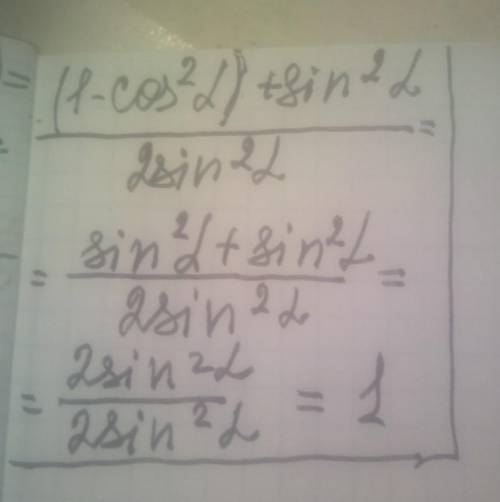 = (1-cos²α) + sin²α / 2sin²α =
= sin²α + sin²α / 2sin²α =
= 2sin²α / 2sin²α = 1